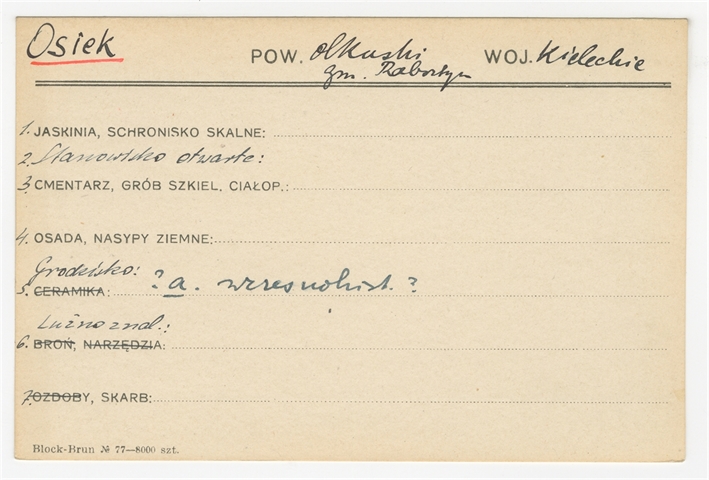 Osiek POW. olkuski WOJ. Kieleckie
gm. Rabsztyn
1. JASKINIA, SCHRONISKO SKALNE:
2. Stanowisko otwarte:
3. CMENTARZ, GRÓB SZKIEL. CIAŁOP.:
4. OSADA, NASYPY ZIEMNE:
Grodzisko:
5. CERAMIKA: ? a. wczesnohist. ?
Luźno znal.:
6. BROŃ, NARZĘDZIA:
7. OZDOBY, SKARB:
Block-Brun № 77—8000 szt.